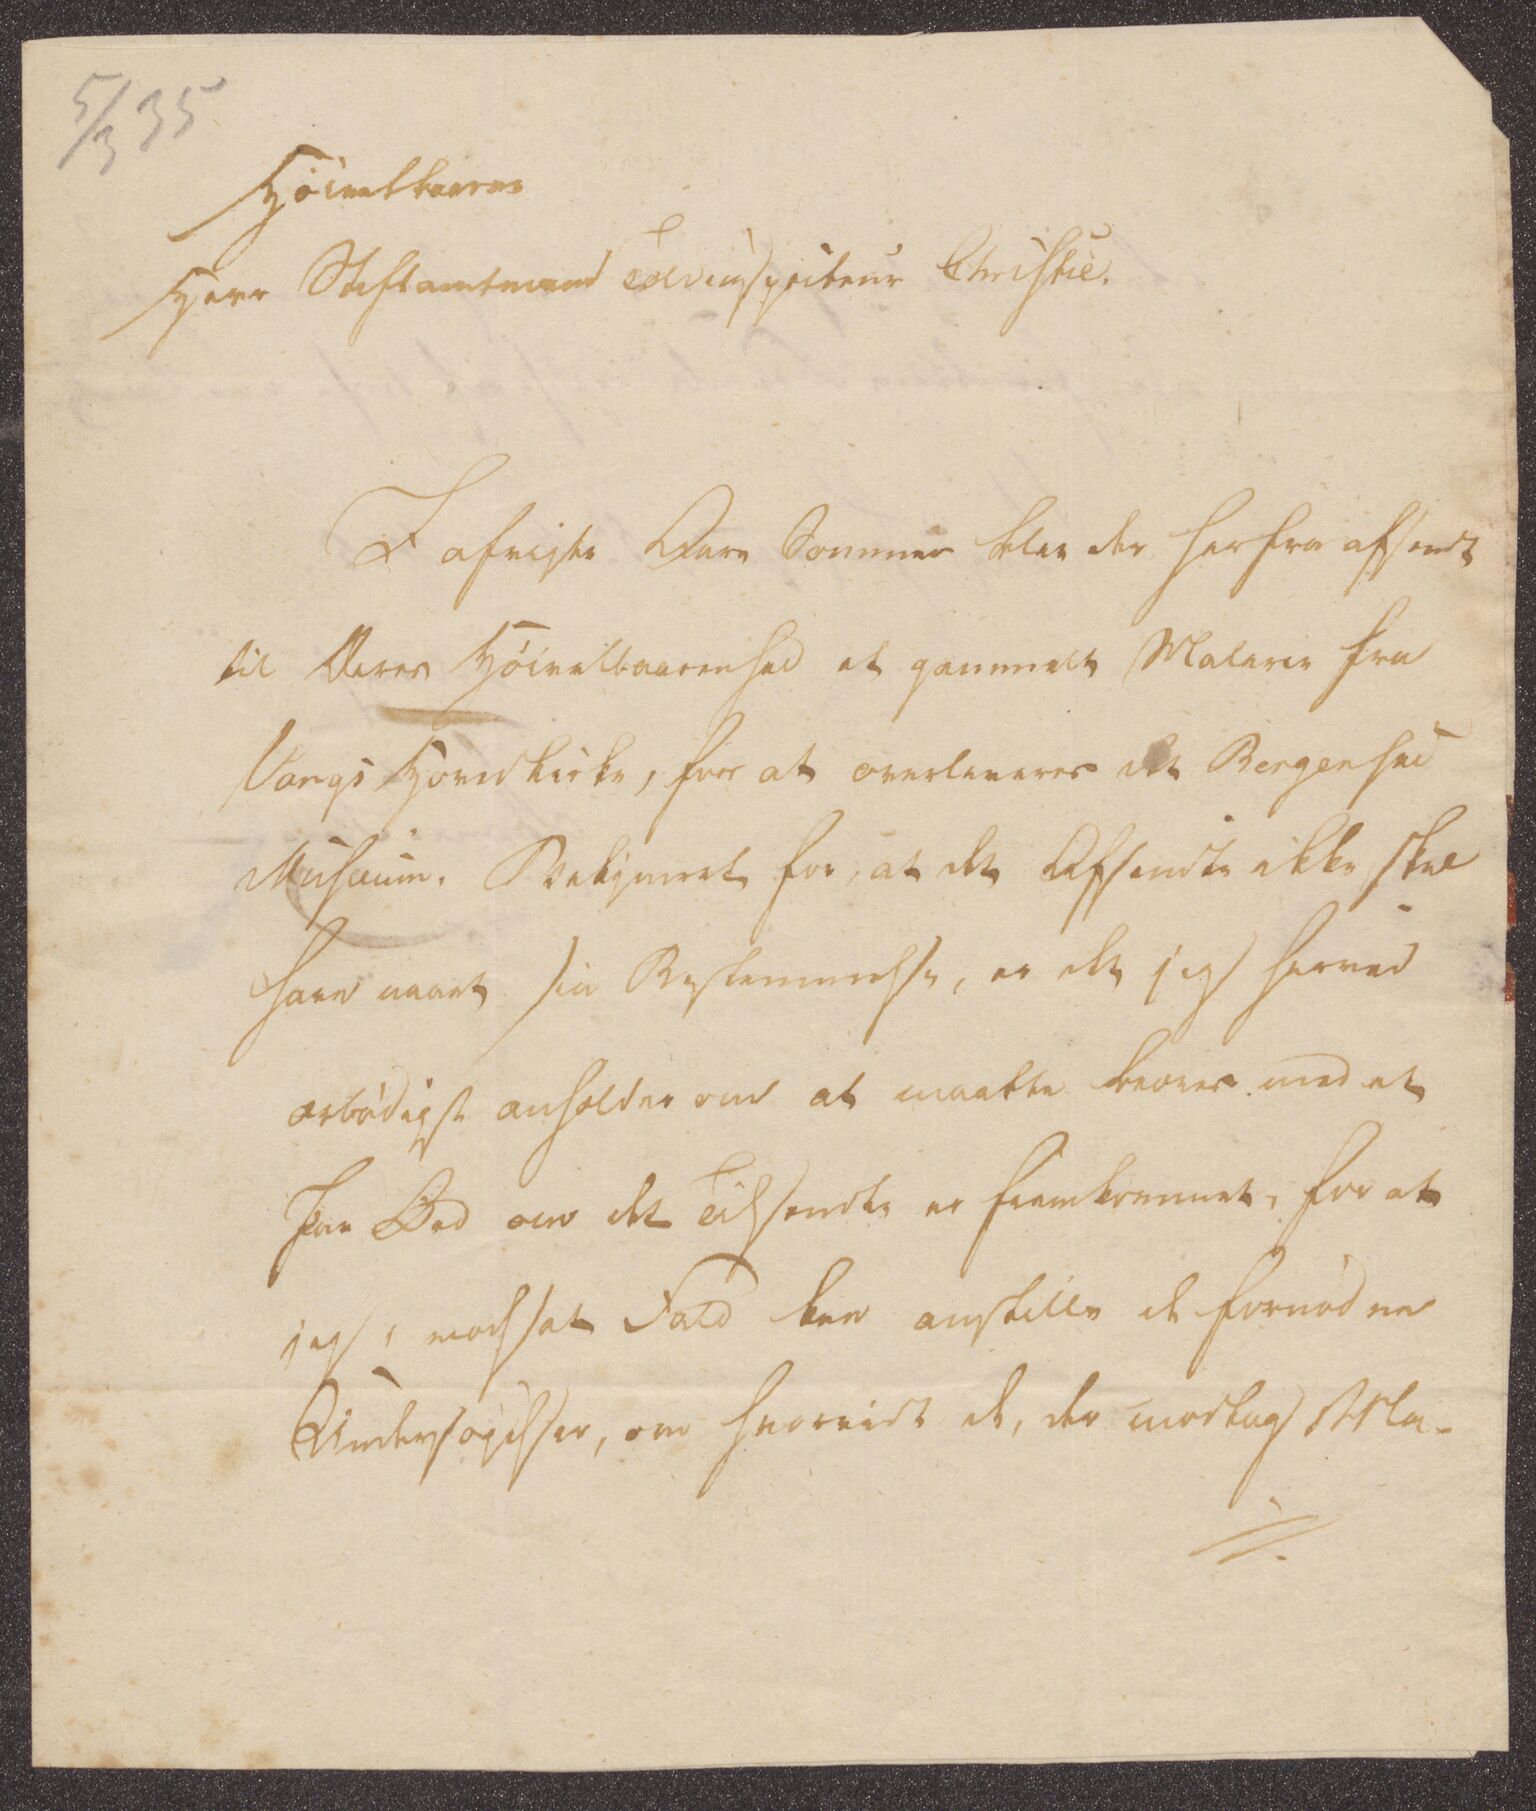 5/3 35
Høivelbaarne
Herr Stiftamtmand Toldinspecteur Christie.
I afvigte Aars Sommer blev der herfra afsendt
til Deres Høivelbaarenhed et gammelt Malerie fra
Vangs Hovedkirke, for at overleveres det Bergenske
Museum. Bekymret for, at det Afsendte ikke skal
have naaet sin Bestemmelse, er det jeg herved
ærbødigst anholder om at maatte beæres med et
Par Ord om det Tilsendte er fremkommet, for at
jeg i modsat Fald kan anstille de fornødne
Undersøgelser, om hvorvidt de, der modtog Ma-